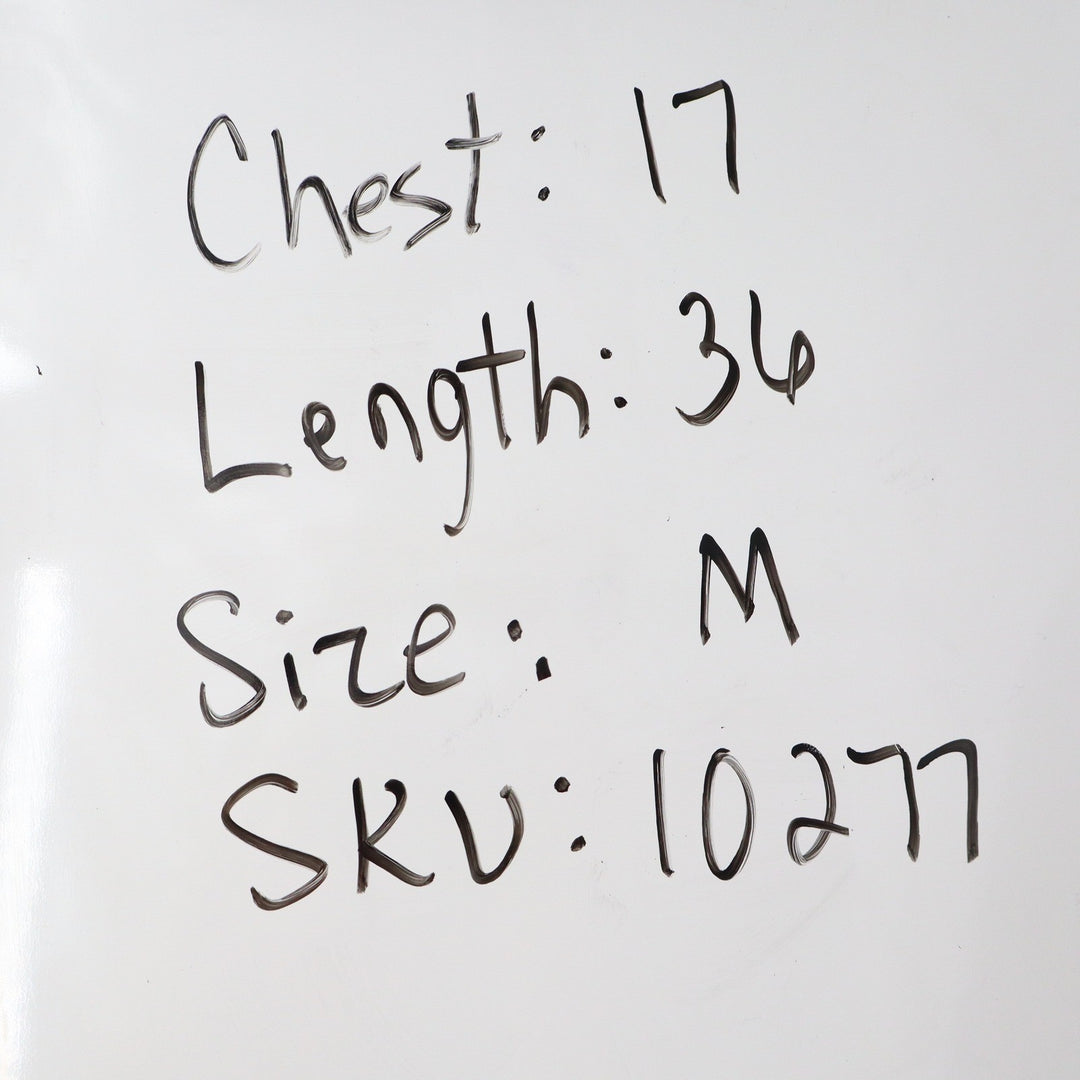 Chest: 17
Length: 36
Size: M
SKU: 10277